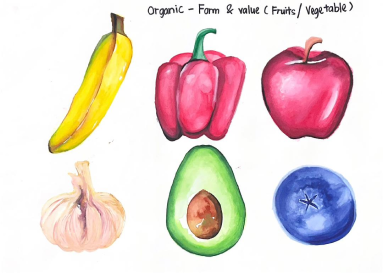 Organic - Form & value (Fruits/Vegetable)